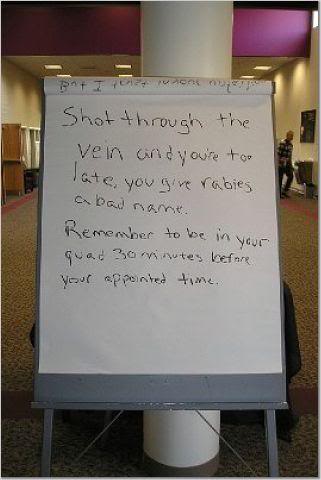 Shot through the
vein and you're too
late, you give rabies
a bad name.
Remember to be in your
quad 30 minutes before
your appointed time.